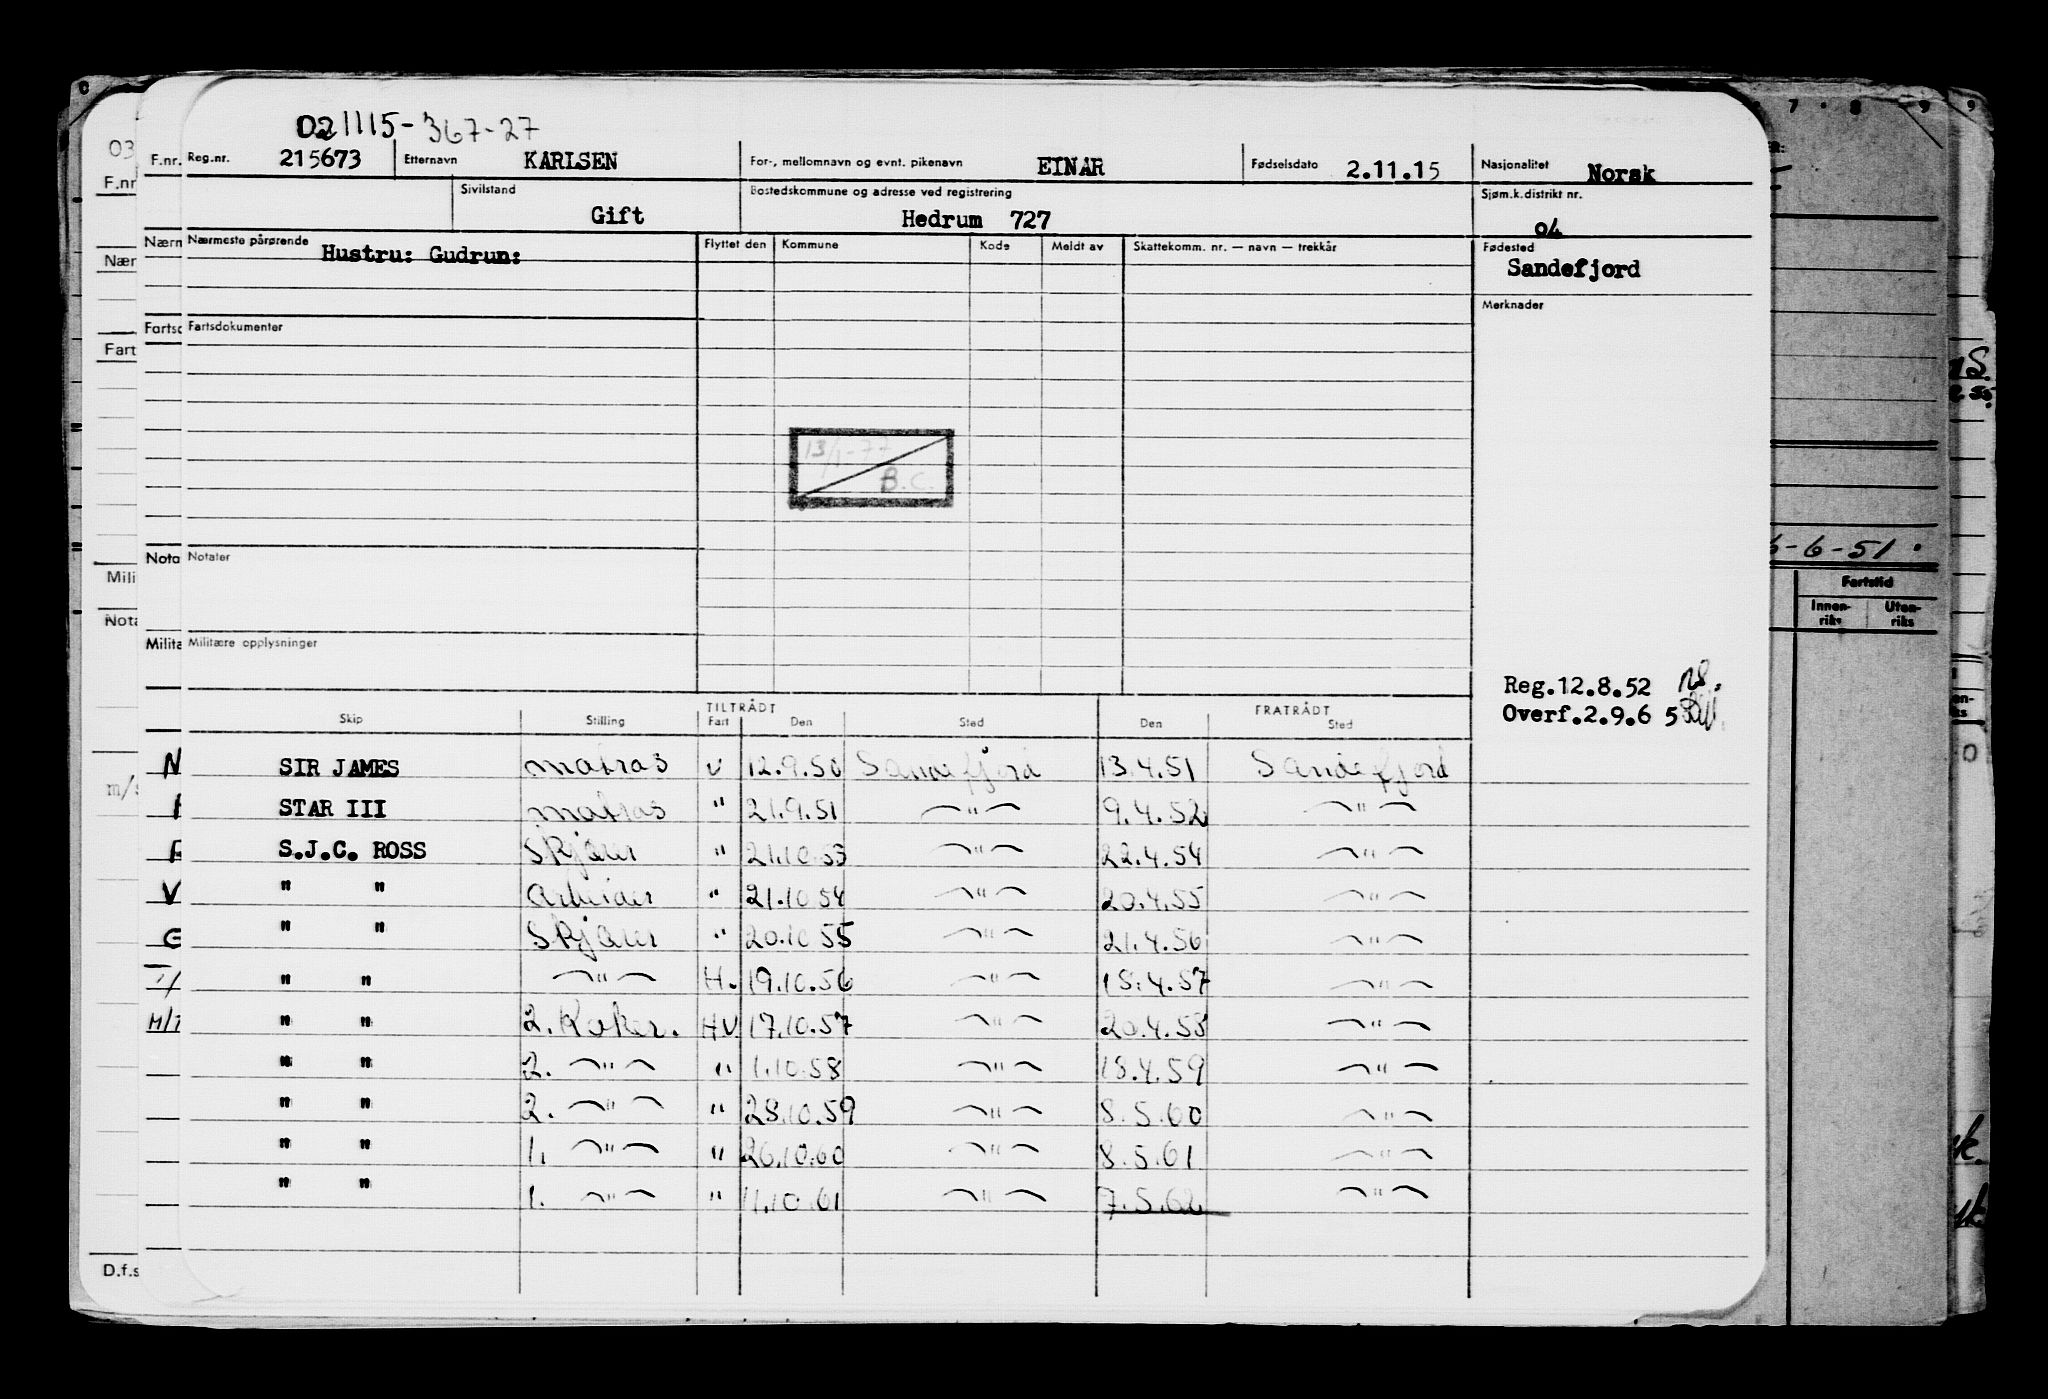 021115-367-27
Reg.nr. 215673 Etternavn KARLSEN For-, mellomnavn og evnt. pikenavn EINAR Fødselsdato 2.11.15 Nasjonalitet Norsk
Sivilstand Gift Bostedskommune og adresse ved registrering Hedrum 727 Sjøm.k.distrikt nr. 04
Nærmeste pårørende Hustru: Gudrun: Flyttet den Kommune Kode Meldt av Skattekomm. nr. — navn — trekkår Fødested Sandefjord
Merknader
Fartsdokumenter
13/1-77
B.C.
Notater
Militære opplysninger
Reg.12.8.52
Overf.2.9.6 5
TILTRÅDT FRATRÅDT
Skip Stilling Fart Den Sted Den Sted
SIR JAMES matros U 12.9.50 Sandefjord 13.4.51 Sandefjord
STAR III matros " 21.9.51 —"— 9.4.52 —"—
S.J.C. ROSS Skjærer " 21.10.53 —"— 22.4.54 —"—
" " Arbeider " 21.10.54 —"— 20.4.55 —"—
" " Skjærer " 20.10.55 —"— 21.4.56 —"—
" " —"— H. 19.10.56 —"— 18.4.57 —"—
" " 2. Koker. H.V. 17.10.57 —"— 20.4.58 —"—
" " 2. —"— " 1.10.58 —"— 18.4.59 —"—
" " 2. —"— " 28.10.59 —"— 8.5.60 —"—
" " 1. —"— " 26.10.60 —"— 8.5.61 —"—
" " 1. —"— " 11.10.61 —"— 7.5.62 —"—
03
F.nr
F.nr.
Nær
Nærn
Fart
Fartsd
Nota
Mili
Nota
Milita
m/s
D.f.s
M/T
7 8 9 9
6-6-51.
Fartstid
Innen-riks Uten-riks